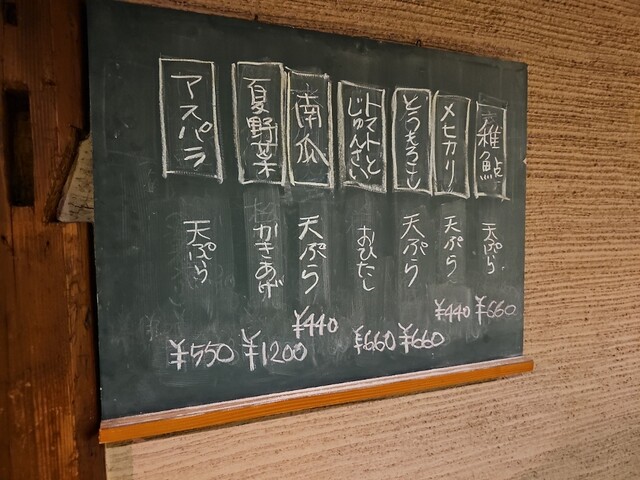 稚鮎
天ぷら
¥660
メヒカリ
天ぷら
¥440
とうもろこし
天ぷら
¥660
トマトと
じゅんさい
おひたし
¥660
南瓜
天ぷら
¥440
夏野菜
かきあげ
¥1200
アスパラ
天ぷら
¥550